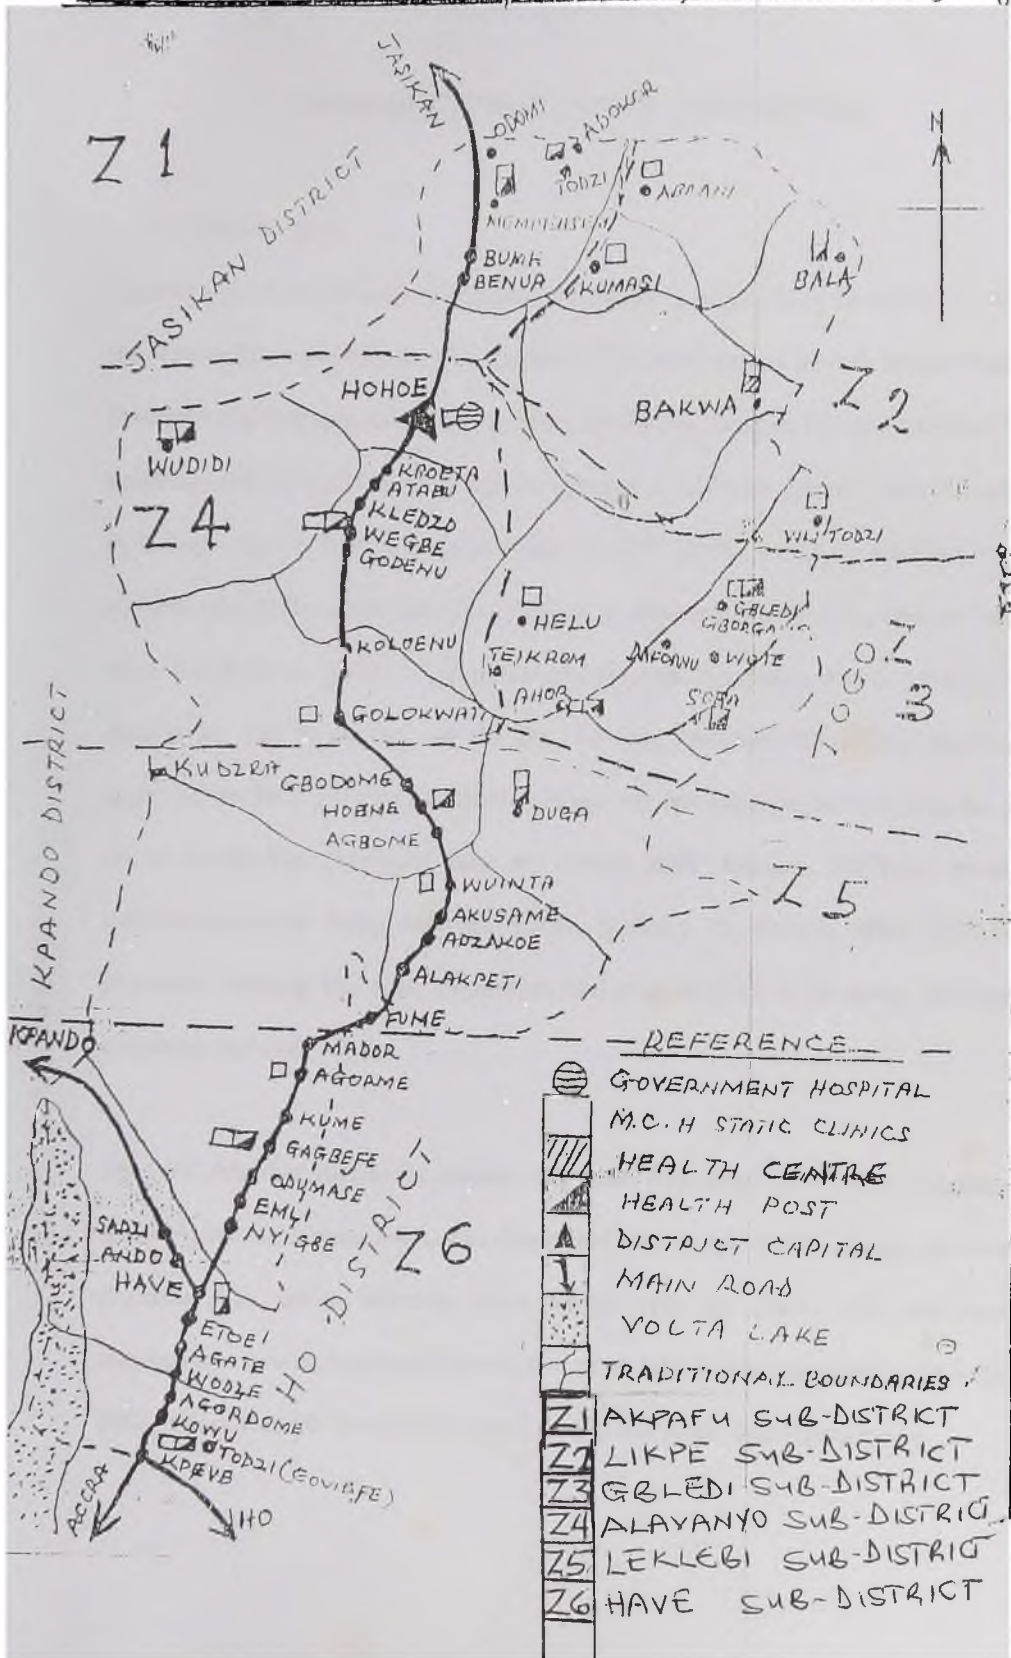 JASIKAN
Z 1
ODOMI
ADOKOR
N
TODZI
JASIKAN DISTRICT
BENUA
KUMASI
BALA
HOHOE
BAKWA
Z 2
WUDIDI
KPOETA
ATABU
Z4
KLEDZO
WEGBE
GODENU
WLI TODZI
HELU
GBLEDI
GBORGA
KOLOENU
TEIKROM
WOTE
AHOR
TOGO
Z 3
GOLOKWATI
KUDZRA
GBODOME
HOENE
AGBOME
DUGA
KPANDO DISTRICT
WUINTA
Z 5
AKUSAME
ADZAKOE
ALAKPETI
FUME
KPANDO
MADOR
AGOAME
KUME
GAGBEFE
ODUMASE
EMLI
NYIGBE
Z6
SADZI
ANDO
HAVE
HO DISTRICT
ETOEI
AGATE
WODZE
AGORDOME
KOWU
TODZI
KPEVE
ACCRA
HO
REFERENCE
GOVERNMENT HOSPITAL
M.C.H STATIC CLINICS
HEALTH CENTRE
HEALTH POST
DISTRICT CAPITAL
MAIN ROAD
VOLTA LAKE
TRADITIONAL BOUNDARIES
Z1 AKPAFU SUB-DISTRICT
Z2 LIKPE SUB-DISTRICT
Z3 GBLEDI SUB-DISTRICT
Z4 ALAVANYO SUB-DISTRICT
Z5 LEKLEBI SUB-DISTRICT
Z6 HAVE SUB-DISTRICT